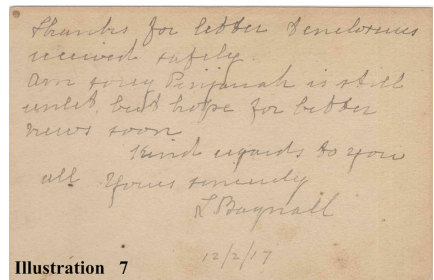 Thanks for letter & enclosures
received safely.
Am sorry Penjanah is still
unlet, but hope for better
news soon
Kind regards to you
all Yours sincerely
L Bagnall
12/2/17
Illustration 7